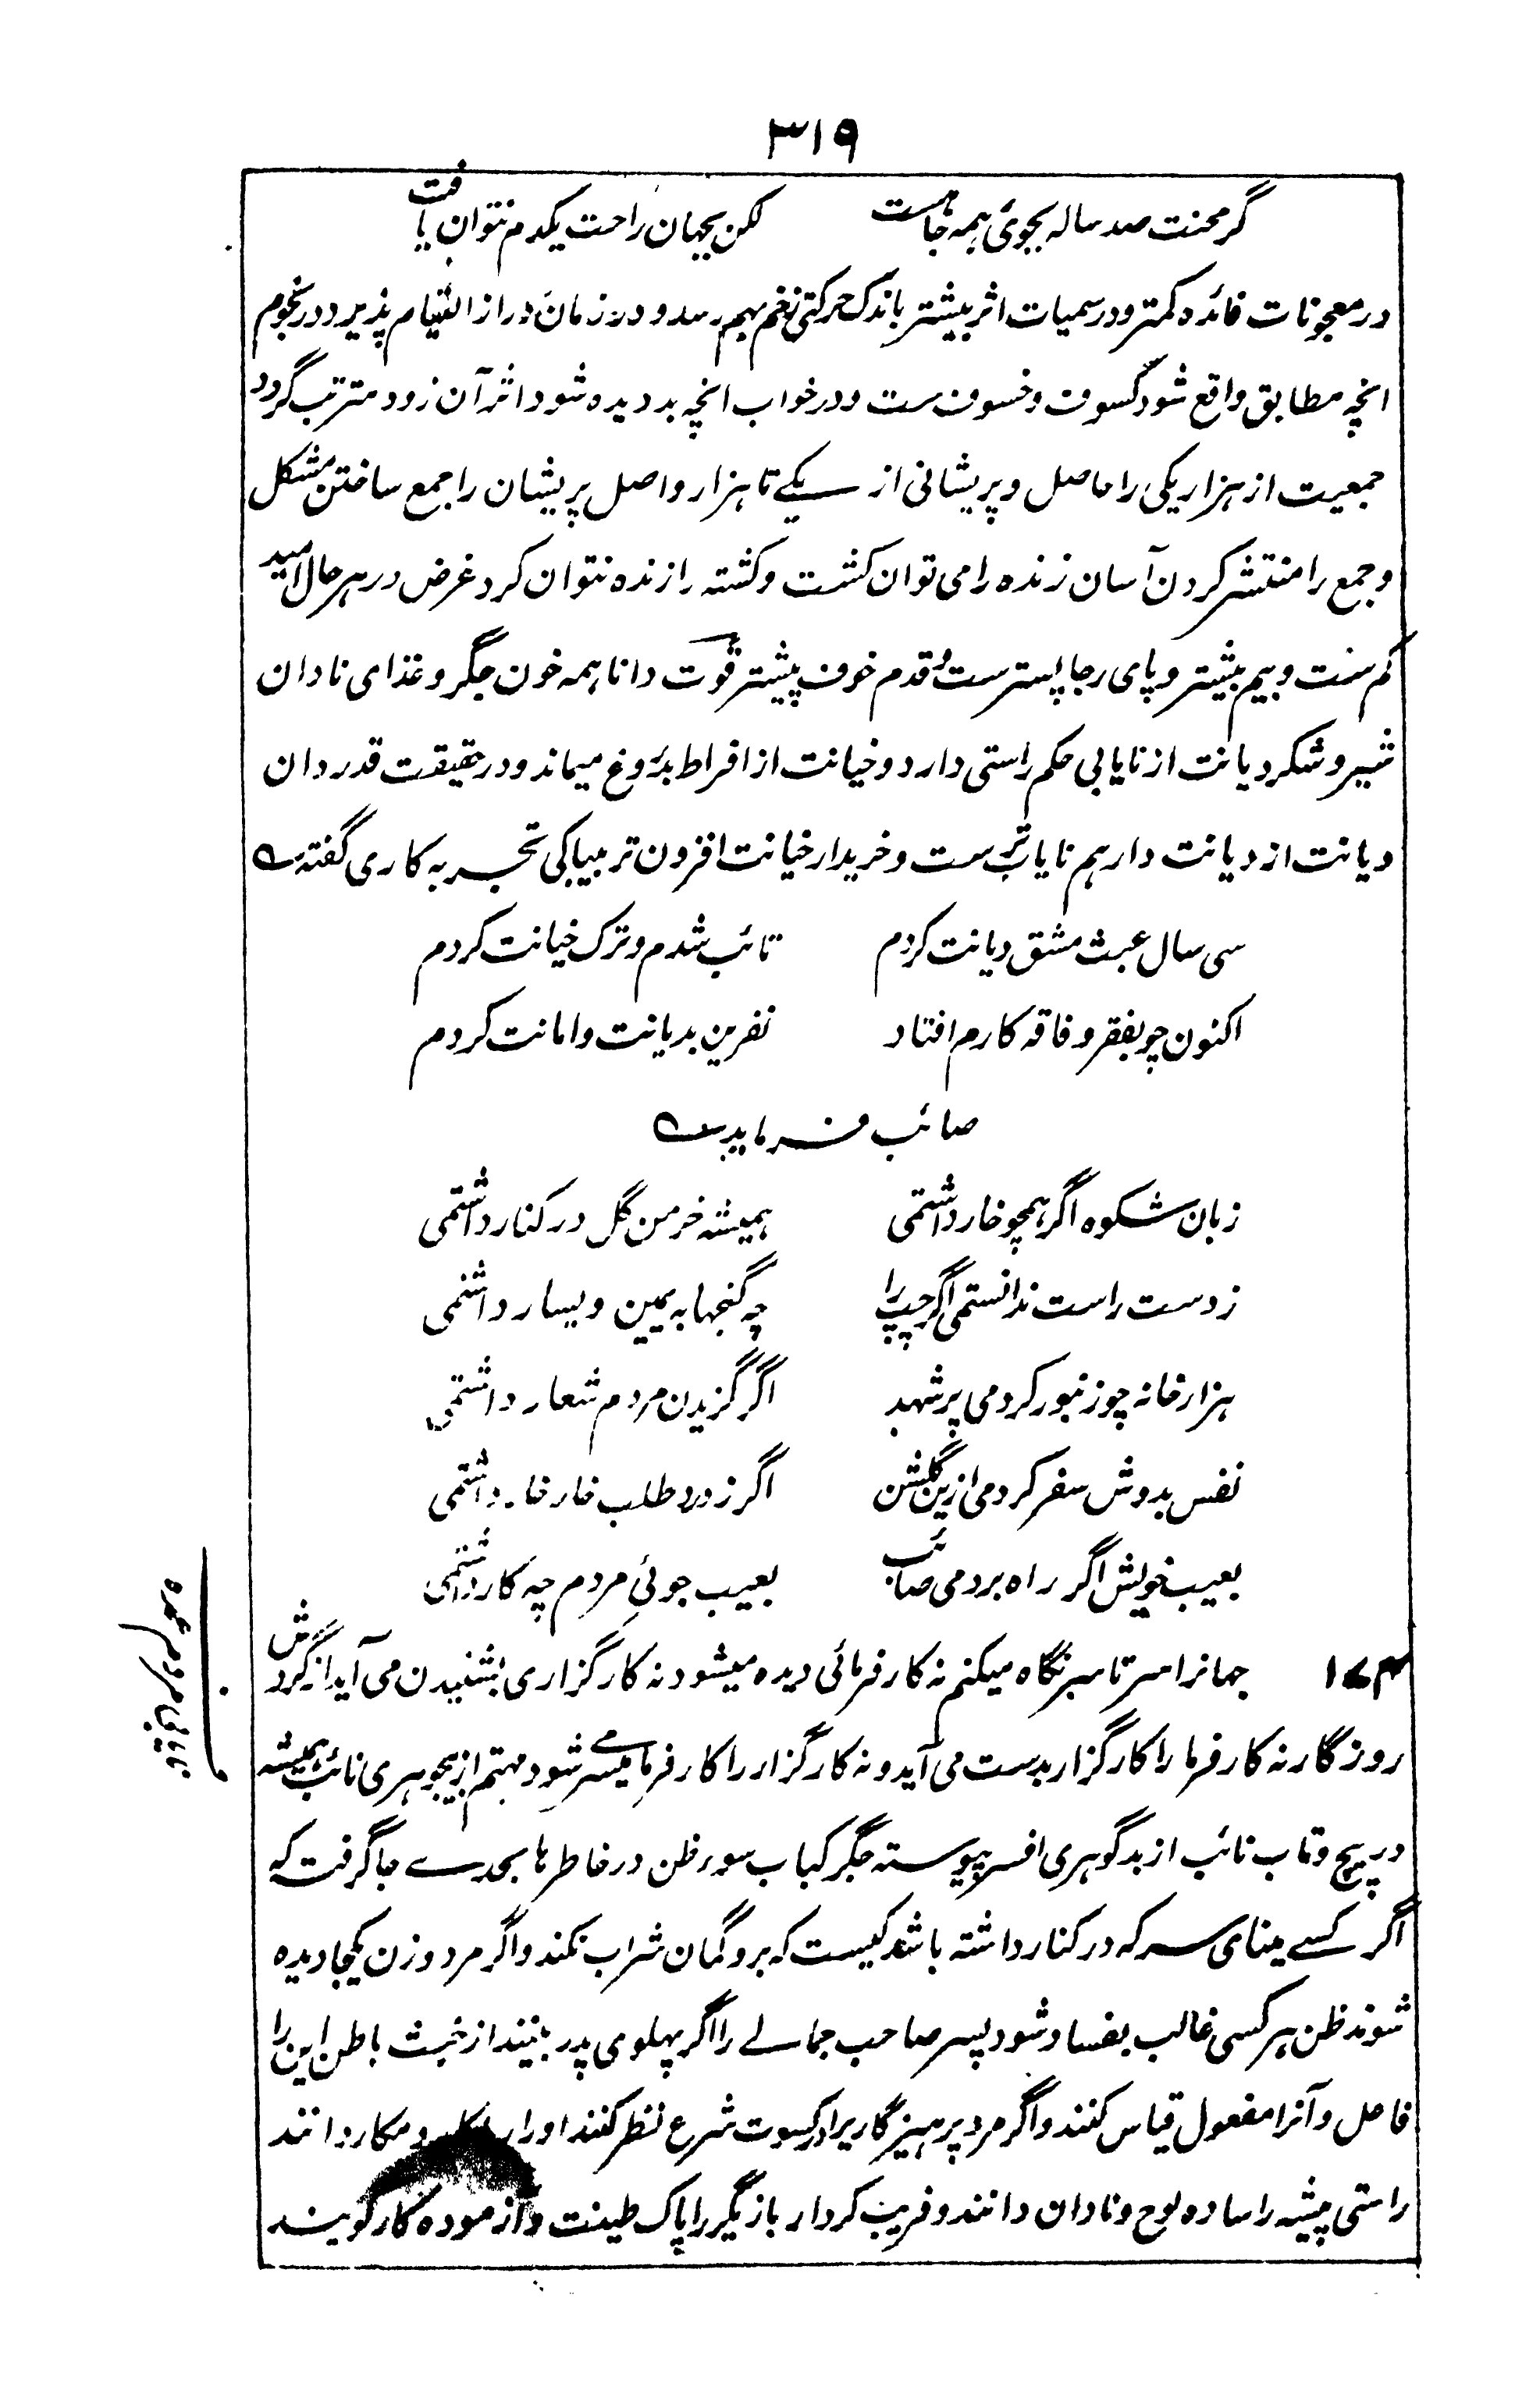 ۳۱۹
گر محنت صد ساله بجوئی همه جا هست لکن بجهان راحت یکدم نتوان یافت
در معجونات فائده کمتر و در سمیات اثر بیشتر باندک حرکتی زخم بهم رسد و در زمان دراز التیام پذیرد در نجوم
انچه مطابق واقع شود کسوف و خسوف ست و در خواب انچه بد دیده شود اثر آن زود مترتب گردد
جمعیت از هزار یکی را حاصل و پریشانی از یکے تا هزار واصل پریشان را جمع ساختن مشکل
و جمع را منتشر کردن آسان زنده را می توان کشت و کشته را زنده نتوان کرد غرض در هر حال امید
کم ست و بیم بیشتر و پای رجا پسترست و قدم خوف پیشتر قوت دانا همه خون جگر و غذای نادان
شیر و شکر دیانت از نایابی حکم راستی دارد و خیانت از افراط بدروغ میماند و در حقیقت قدردان
دیانت از دیانت دار هم نایاب تر ست و خریدار خیانت افزون تر بیباکی تجربه کاری گفته
سی سال عبث مشق دیانت کردم تائب شدم و ترک خیانت کردم
اکنون چو بفقر و فاقه کارم افتاد نفرین بدیانت و امانت کردم
صائب فرماید
زبان شکوه اگر همچو خار داشتمی همیشه خرمن گل در کنار داشتمی
ز دست راست ندانستمی اگر چپ را چه گنجها به یمین و یسار داشتمی
هزار خانه چو زنبور کردمی پر شهد اگر گزیدن مردم شعار داشتمی
نفس بدوش سفر کردمی ازین گلشن اگر ز درد طلب خار خار داشتمی
بعیب خویش اگر راه بردمی صائب بعیب جوئی مردم چه کار داشتمی
۱۷۴ جهانرا سر تا سر نگاه میکنم نه کارفرمائی دیده میشود نه کارگزاری بشنیدن می آید از گردش
روزگار نه کارفرما را کارگزار بدست می آید و نه کارگزار را کارفرما میسر شود مهتمم از بیجوهری نائب همیشه
در پیچ و تاب نائب از بدگوهری افسر پیوسته جگر کباب سوء ظن در خاطر ها بحدے جا گرفت که
اگر کسے مینای سرکه در کنار داشته باشد کیست که برو گمان شراب نکند و اگر مرد و زن یکجا دیده
شوند ظن هر کسی غالب بفساد شود پسر صاحب جمالے را اگر پهلوی پدر بینند از خبث باطن این را
فاعل و آنرا مفعول قیاس کنند و اگر مرد پرهیزگاریرا در کسوت شرع نظر کنند او را و مکار دانند
راستی پیشه را ساده لوح و نادان دانند و فریب کردار بازیگر را پاک طینت و آزموده کار گویند